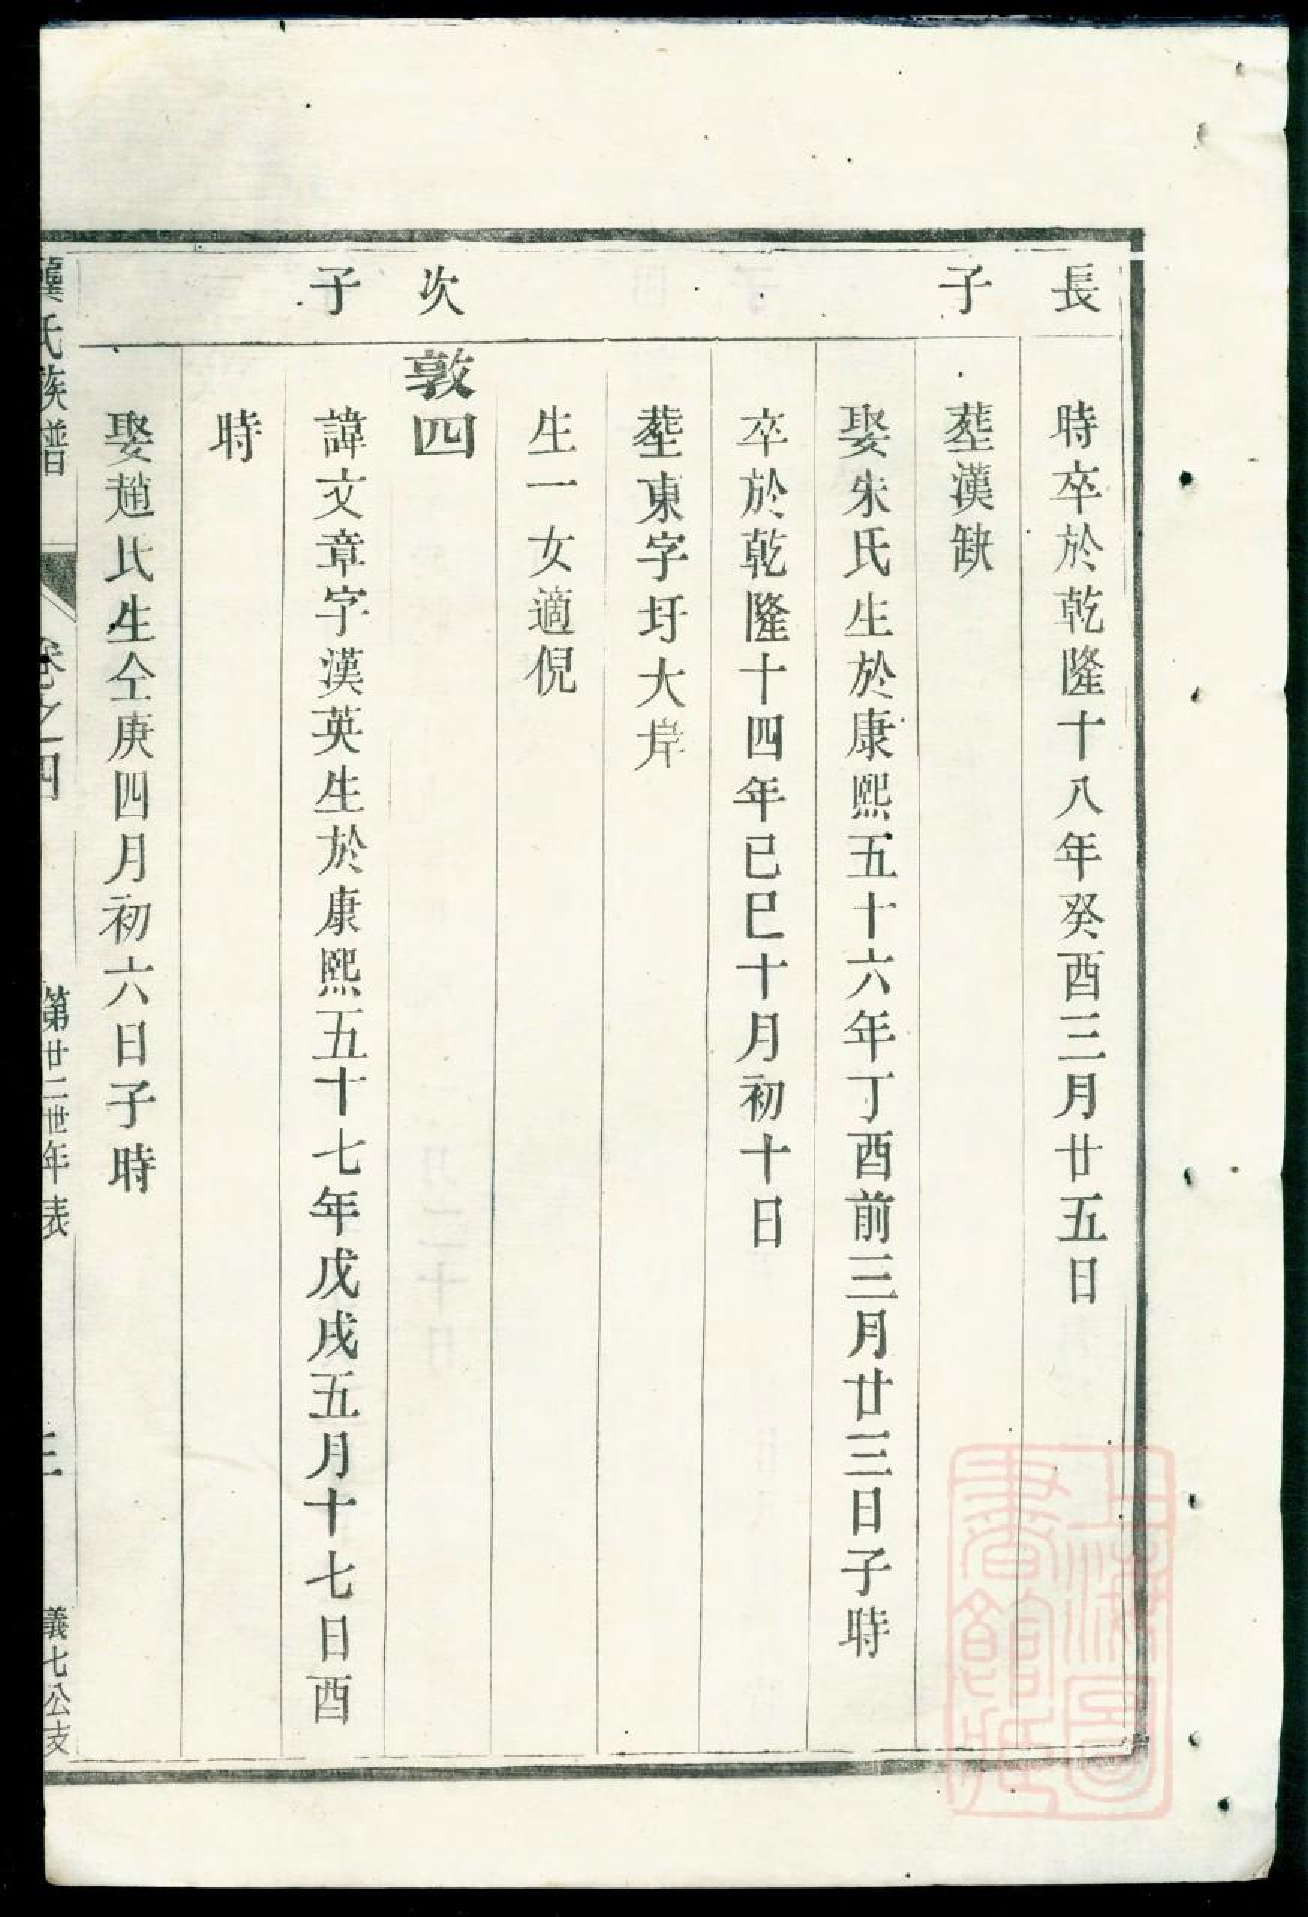 長子
時卒於乾隆十八年癸酉三月廿五日
塟漢缺
娶朱氏生於康熙五十六年丁酉前三月廿三日子時
卒於乾隆十四年己巳十月初十日
塟東字圩大岸
生一女適倪
次子
敦四
諱文章字漢英生於康熙五十七年戊戌五月十七日酉
時
娶趙氏生仝庚四月初六日子時
龔氏族譜
卷之四
第廿二世年表
三
義七公支
上海圖
書館藏